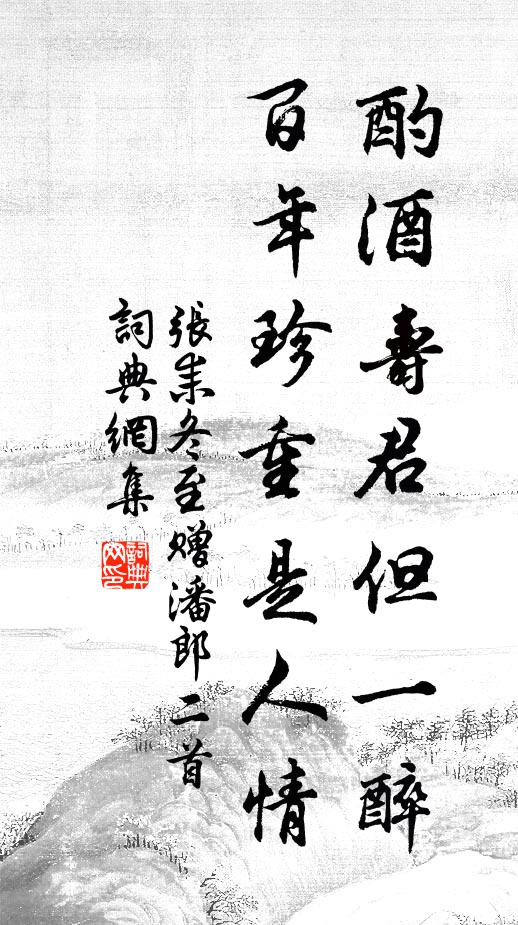 酌酒壽君但一醉
百年珍重是人情
張耒冬至贈潘郎二首
詞典網集
詞典
网印